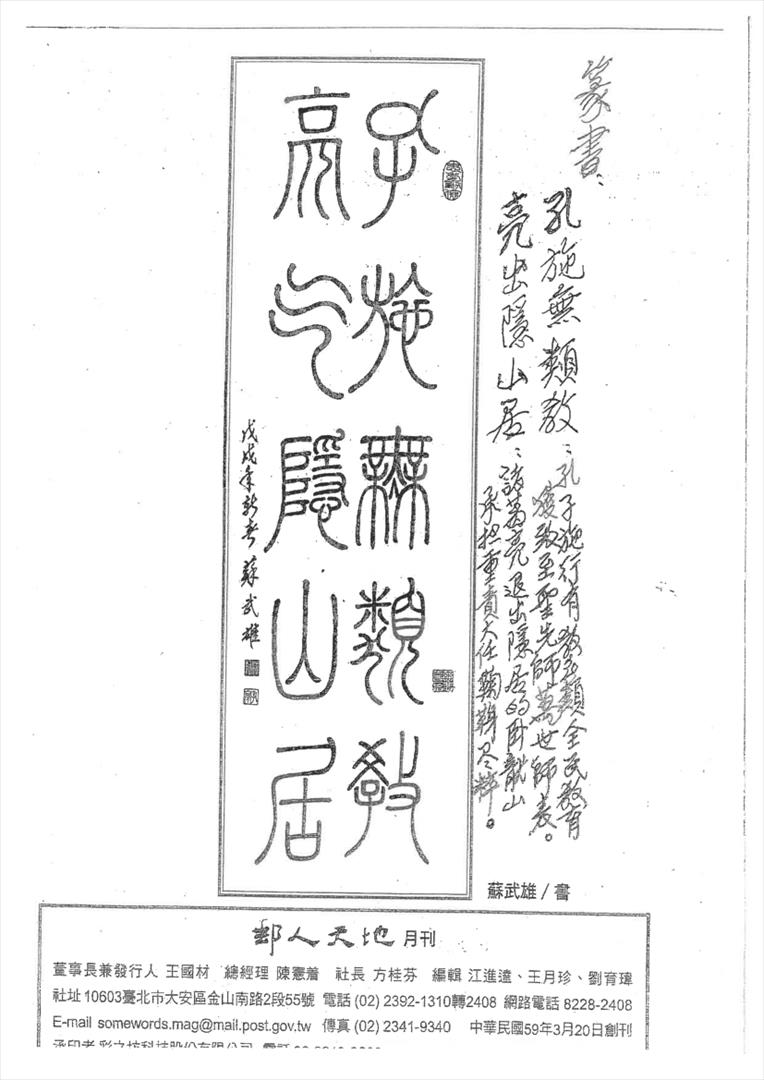 篆書：
孔施無類教：孔子施行有教無類全民教育
獲致至聖先師萬世師表。
亮出隱山居：諸葛亮退出隱居的臥龍山
承担重責大任鞠躬尽粹。
孔施無類教
亮出隱山居
戊戌年新春 蘇武雄
蘇武雄/書
郵人天地 月刊
董事長兼發行人 王國材 總經理 陳憲着 社長 方桂芬 編輯 江進達、王月珍、劉育瑋
社址 10603臺北市大安區金山南路2段55號 電話 (02) 2392-1310轉2408 網路電話 8228-2408
E-mail somewords.mag@mail.post.gov.tw 傳真 (02) 2341-9340 中華民國59年3月20日創刊